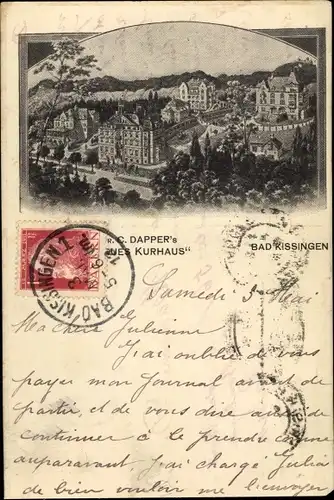 R. C. DAPPER's
UES KURHAUS"
BAD KISSINGEN
BAYERN
BAD KISSINGEN 1
Samedi 3 Mai
Ma chère Julienne
J'ai oublié de vous
payer mon Journal avant de
partir, et de vous dire aussi de
continuer à le prendre comme
auparavant, j'ai chargé Julia
de bien vouloir me l'envoyer